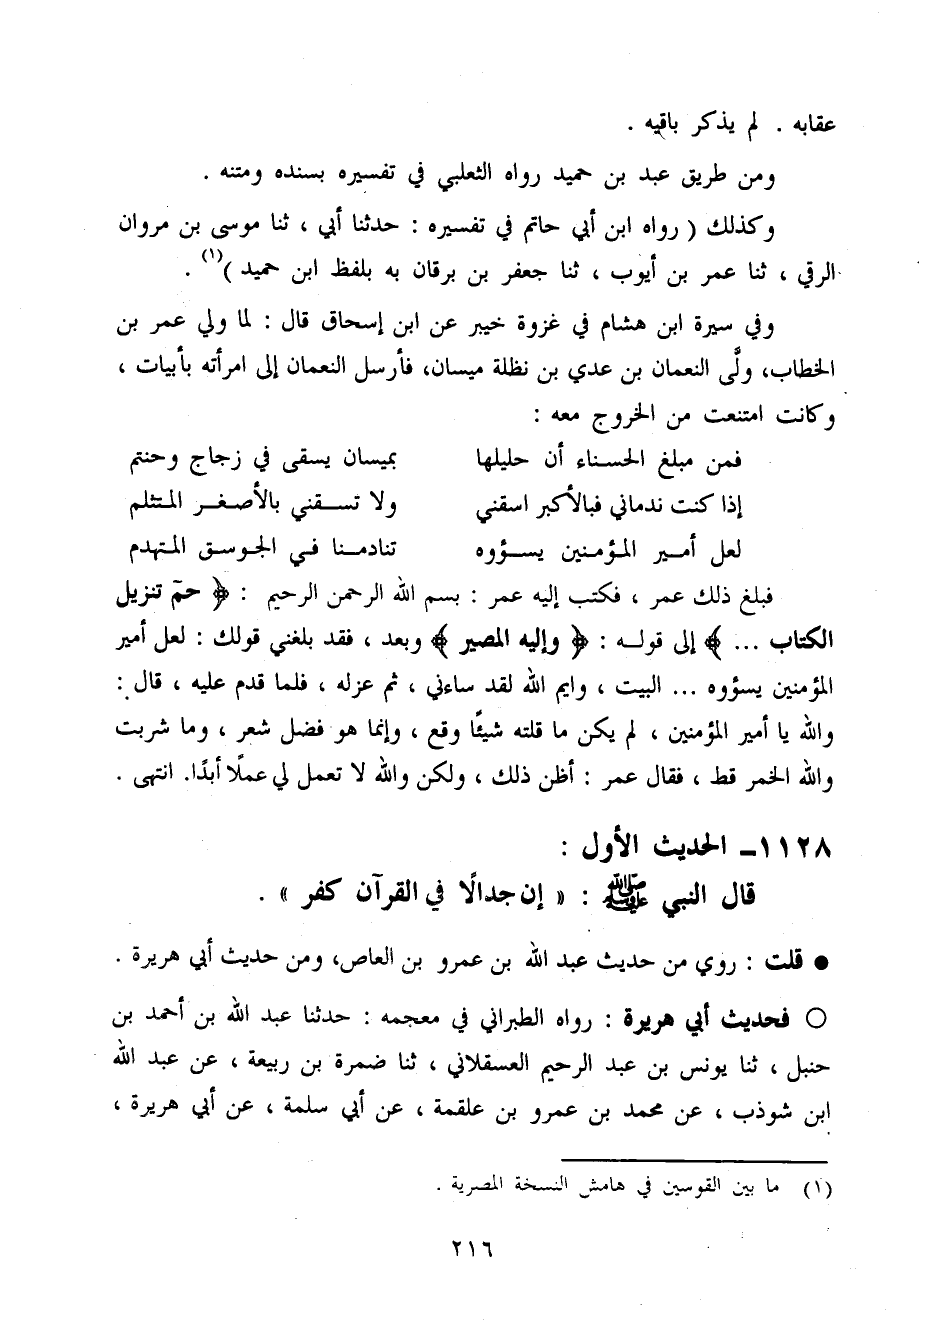 عقابه . لم يذكر باقيه .
ومن طريق عبد بن حميد رواه الثعلبي في تفسيره بسنده ومتنه .
وكذلك ( رواه ابن أبي حاتم في تفسيره : حدثنا أبي ، ثنا موسى بن مروان
الرقي ، ثنا عمر بن أيوب ، ثنا جعفر بن برقان به بلفظ ابن حميد )(١) .
وفي سيرة ابن هشام في غزوة خيبر عن ابن إسحاق قال : لما ولي عمر بن
الخطاب، ولَّى النعمان بن عدي بن نظلة ميسان، فأرسل النعمان إلى امرأته بأبيات ،
وكانت امتنعت من الخروج معه :
فمن مبلغ الحسناء أن حليلها بميسان يسقى في زجاج وحنتم
إذا كنت ندماني فبالأكبر اسقني ولا تسقني بالأصغر المتثلم
لعل أمير المؤمنين يسؤوه تنادمنا في الجوسق المتهدم
فبلغ ذلك عمر ، فكتب إليه عمر : بسم الله الرحمن الرحيم : ﴿ حمٓ تنزيل
الكتاب ... ﴾ إلى قوله : ﴿ وإليه المصير ﴾ وبعد ، فقد بلغني قولك : لعل أمير
المؤمنين يسؤوه ... البيت ، وايم الله لقد ساءني ، ثم عزله ، فلما قدم عليه ، قال :
والله يا أمير المؤمنين ، لم يكن ما قلته شيئًا وقع ، وإنما هو فضل شعر ، وما شربت
والله الخمر قط ، فقال عمر : أظن ذلك ، ولكن والله لا تعمل لي عملًا أبدًا. انتهى .
١١٢٨ـ الحديث الأول :
قال النبي ﷺ : « إن جدالًا في القرآن كفر » .
● قلت : روي من حديث عبد الله بن عمرو بن العاص، ومن حديث أبي هريرة .
○ فحديث أبي هريرة : رواه الطبراني في معجمه : حدثنا عبد الله بن أحمد بن
حنبل ، ثنا يونس بن عبد الرحيم العسقلاني ، ثنا ضمرة بن ربيعة ، عن عبد الله
ابن شوذب ، عن محمد بن عمرو بن علقمة ، عن أبي سلمة ، عن أبي هريرة ،
(١) ما بين القوسين في هامش النسخة المصرية .
٢١٦